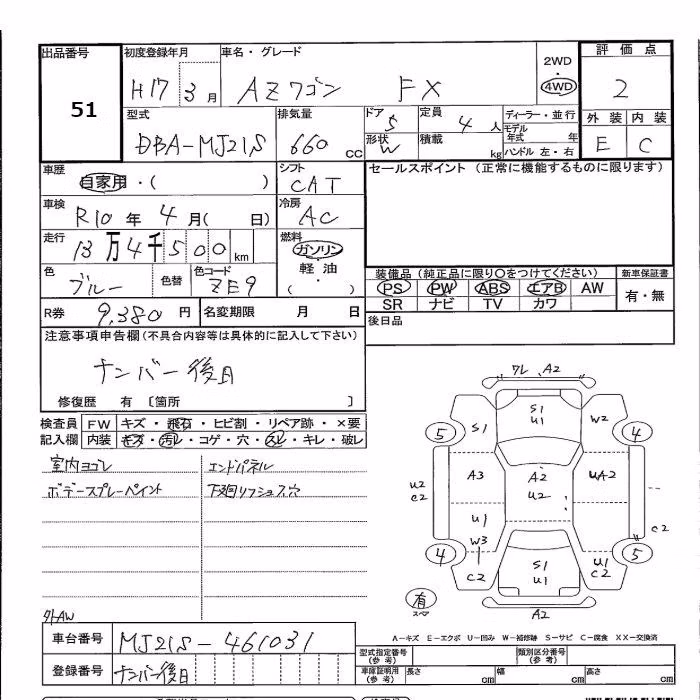 出品番号 初度登録年月 車名・グレード 2WD 評価点
51 H17 3月 AZワゴン FX 4WD 2
型式 排気量 ドア 定員 ディーラー・並行 外装 内装
DBA-MJ21S 660cc 5 4人 モデル年式 年 E C
形状 W 積載 kg ハンドル 左・右
車歴 シフト セールスポイント (正常に機能するものに限ります)
自家用・( ) CAT
車検 冷房
R10年 4月( 日) AC
走行 燃料
13万4千500km ガソリン
軽油
色 色替 色コード ・
ブルー ZE9 ( )
装備品 (純正品に限り○をつけてください) 新車保証書
PS PW ABS エアB AW 有・無
SR ナビ TV カワ
R券 9,380円 名変期限 月 日 後日品
注意事項申告欄(不具合内容等は具体的に記入して下さい)
ナンバー後日
修復歴 有 〔箇所 〕
検査員 FW キズ・飛石・ヒビ割・リペア跡・×要
記入欄 内装 キズ・汚レ・コゲ・穴・スレ・キレ・破レ
室内ヨゴレ エンドパネル
ボデースプレーペイント 下廻リフシュス穴
ワレ A2
S1 U1
5 S1 W2 4
A3 A2 UA2
U2 C2 U2
U1 C2
W3
4 C2 S1 U1 U1 C2 5
有 スペ A2
外AW
A-キズ E-エクボ U-凹み W-補修跡 S-サビ C-腐食 XX-交換済
車台番号 MJ21S-461031 型式指定番号(参考) 類別区分番号(参考)
登録番号 ナンバー後日 車庫証明用(参考) 長さ cm 幅 cm 高さ cm